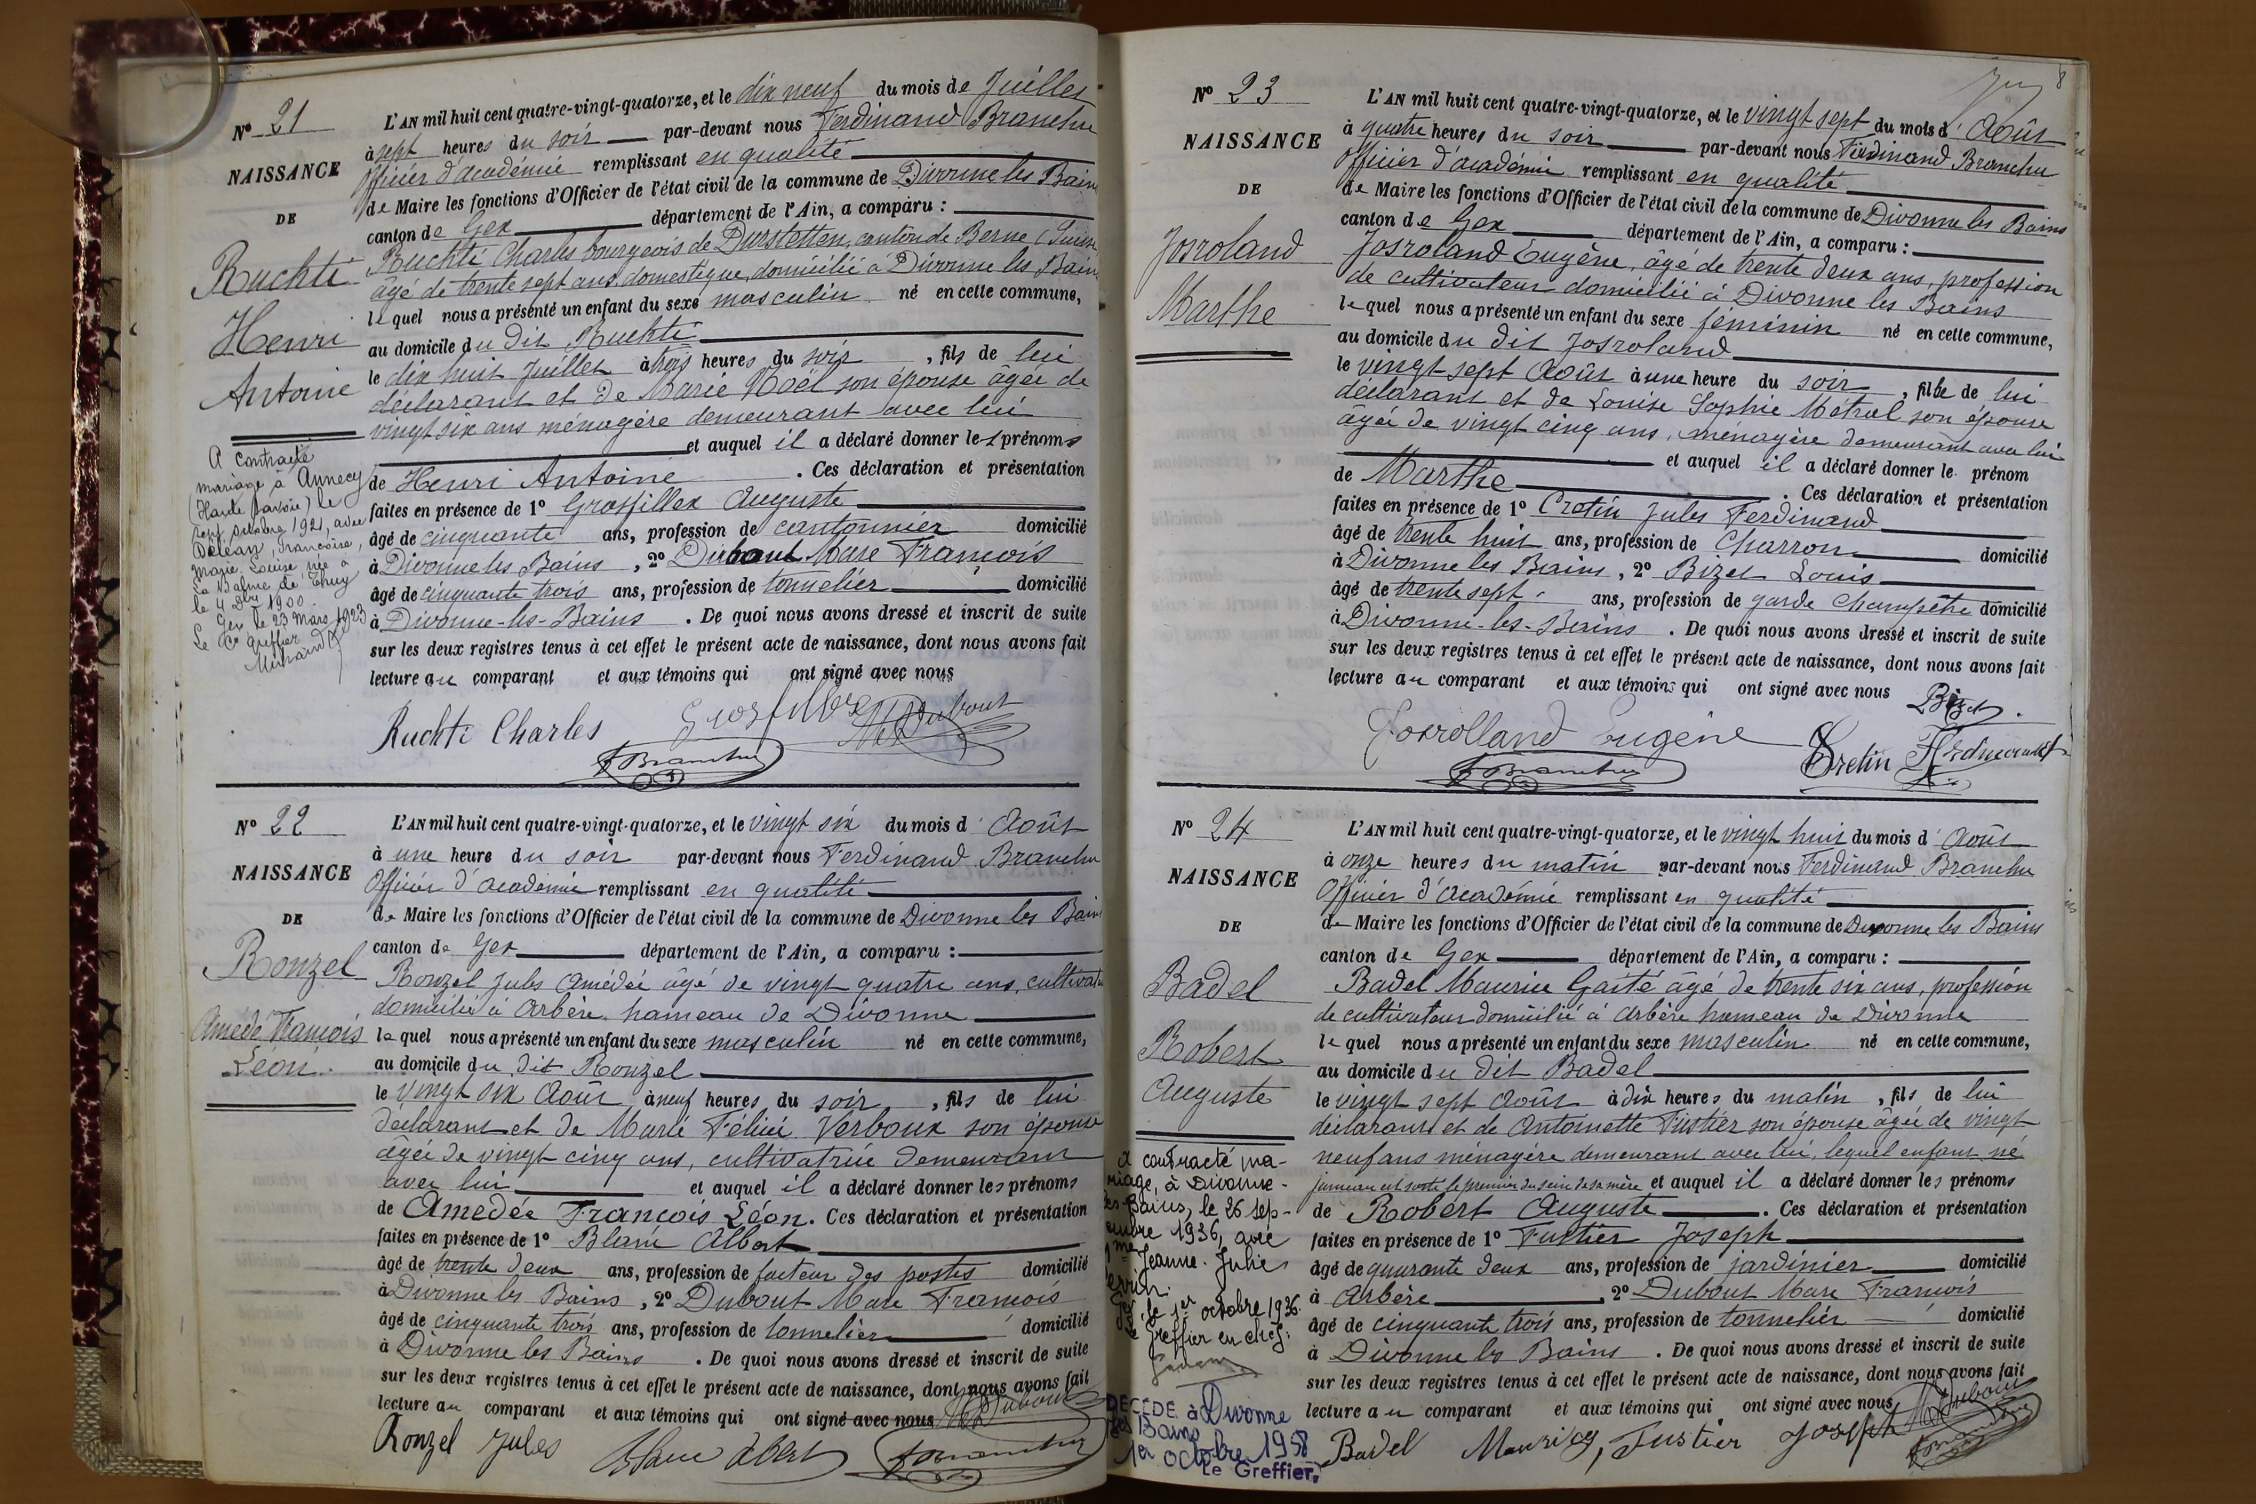 Nº 21
NAISSANCE
DE
Ruchti
Henri
Antoine
A contracté
mariage à Annecy
(Haute Savoie) le
sept octobre 1921, avec
Françoise,
Marie Louise née à
La Balme de Thuy
le 4 Dbre 1900.
Gex le 23 Mars 1923
Le Greffier
L'AN mil huit cent quatre-vingt-quatorze, et le dix neuf du mois de Juillet
à sept heures du soir par-devant nous Ferdinand Branchu
Officier d'académie remplissant en qualité
de Maire les fonctions d'Officier de l'état civil de la commune de Divonne les Bains
canton de Gex département de l'Ain, a comparu :
Ruchti Charles bourgeois de Durstetten, canton de Berne (Suisse
âgé de trente sept ans, domestique, domicilié à Divonne les Bains
lequel nous a présenté un enfant du sexe masculin né en cette commune,
au domicile du dit Ruchti
le dix huit Juillet à trois heures du soir, fils de lui
déclarant et de Marie Noël son épouse âgée de
vingt six ans ménagère demeurant avec lui
et auquel il a déclaré donner les prénoms
de Henri Antoine. Ces déclaration et présentation
faites en présence de 1º Grosfillex Auguste
âgé de cinquante ans, profession de cantonnier domicilié
à Divonne les Bains, 2º Dubout Marc François
âgé de cinquante trois ans, profession de tonnelier domicilié
à Divonne-les-Bains. De quoi nous avons dressé et inscrit de suite
sur les deux registres tenus à cet effet le présent acte de naissance, dont nous avons fait
lecture au comparant et aux témoins qui ont signé avec nous
Ruchti Charles Grosfillex MF Dubout
F Branchu
Nº 22
NAISSANCE
DE
Ronzel
Amedé François
Léon
L'AN mil huit cent quatre-vingt-quatorze, et le vingt six du mois d'Août
à une heure du soir par-devant nous Ferdinand Branchu
Officier d'académie remplissant en qualité
de Maire les fonctions d'Officier de l'état civil de la commune de Divonne les Bains
canton de Gex département de l'Ain, a comparu :
Ronzel Jules Amédée âgé de vingt quatre ans, cultivateur
domicilié à Arbère hameau de Divonne
lequel nous a présenté un enfant du sexe masculin né en cette commune,
au domicile du dit Ronzel
le vingt six Août à neuf heures du soir, fils de lui
déclarant et de Marie Félicie Verboux son épouse
âgée de vingt cinq ans, cultivatrice demeurant
avec lui et auquel il a déclaré donner les prénoms
de Amedée François Léon. Ces déclaration et présentation
faites en présence de 1º Blanc Albert
âgé de trente deux ans, profession de facteur des postes domicilié
à Divonne les Bains, 2º Dubout Marc François
âgé de cinquante trois ans, profession de tonnelier domicilié
à Divonne les Bains. De quoi nous avons dressé et inscrit de suite
sur les deux registres tenus à cet effet le présent acte de naissance, dont nous avons fait
lecture au comparant et aux témoins qui ont signé avec nous MF Dubout
Ronzel Jules Blanc Albert F Branchu
8
Nº 23
NAISSANCE
DE
Josroland
Marthe
L'AN mil huit cent quatre-vingt-quatorze, et le vingt sept du mois d'Août
à quatre heures du soir par-devant nous Ferdinand Branchu
Officier d'académie remplissant en qualité
de Maire les fonctions d'Officier de l'état civil de la commune de Divonne les Bains
canton de Gex département de l'Ain, a comparu :
Josroland Eugène, âgé de trente deux ans, profession
de cultivateur domicilié à Divonne les Bains
lequel nous a présenté un enfant du sexe féminin né en cette commune,
au domicile du dit Josroland
le vingt sept Août à une heure du soir, fille de lui
déclarant et de Louise Sophie Métral son épouse
âgée de vingt cinq ans, ménagère demeurant avec lui
et auquel il a déclaré donner le prénom
de Marthe. Ces déclaration et présentation
faites en présence de 1º Cretin Jules Ferdinand
âgé de trente huit ans, profession de Charron domicilié
à Divonne les Bains, 2º Bizet Louis
âgé de trente sept ans, profession de garde Champêtre domicilié
à Divonne-les-Bains. De quoi nous avons dressé et inscrit de suite
sur les deux registres tenus à cet effet le présent acte de naissance, dont nous avons fait
lecture au comparant et aux témoins qui ont signé avec nous Bizet
Josrolland Eugène Cretin Ferdinand
F Branchu
Nº 24
NAISSANCE
DE
Badel
Robert
Auguste
A contracté ma-
riage, à Divonne-
les-Bains, le 26 sep-
tembre 1936, avec
Jeanne Julie
Gex, le 1er octobre 1936.
Le Greffier en chef:
DECEDE à Divonne
les Bains
1er octobre 1958
Le Greffier,
L'AN mil huit cent quatre-vingt-quatorze, et le vingt huit du mois d'Août
à onze heures du matin par-devant nous Ferdinand Branchu
Officier d'Académie remplissant en qualité
de Maire les fonctions d'Officier de l'état civil de la commune de Divonne les Bains
canton de Gex département de l'Ain, a comparu :
Badel Maurice Gaité âgé de trente six ans, profession
de cultivateur domicilié à Arbère hameau de Divonne
lequel nous a présenté un enfant du sexe masculin né en cette commune,
au domicile du dit Badel
le vingt sept Août à dix heures du matin, fils de lui
déclarant et de Antoinette Fustier son épouse âgée de vingt
neuf ans ménagère demeurant avec lui, lequel enfant né
jumeau est sorti le premier du sein de sa mère et auquel il a déclaré donner les prénoms
de Robert Auguste. Ces déclaration et présentation
faites en présence de 1º Fustier Joseph
âgé de quarante deux ans, profession de jardinier domicilié
à Arbère, 2º Dubout Marc François
âgé de cinquante trois ans, profession de tonnelier domicilié
à Divonne les Bains. De quoi nous avons dressé et inscrit de suite
sur les deux registres tenus à cet effet le présent acte de naissance, dont nous avons fait
lecture au comparant et aux témoins qui ont signé avec nous MF Dubout
Badel Maurice, Fustier Joseph F Branchu